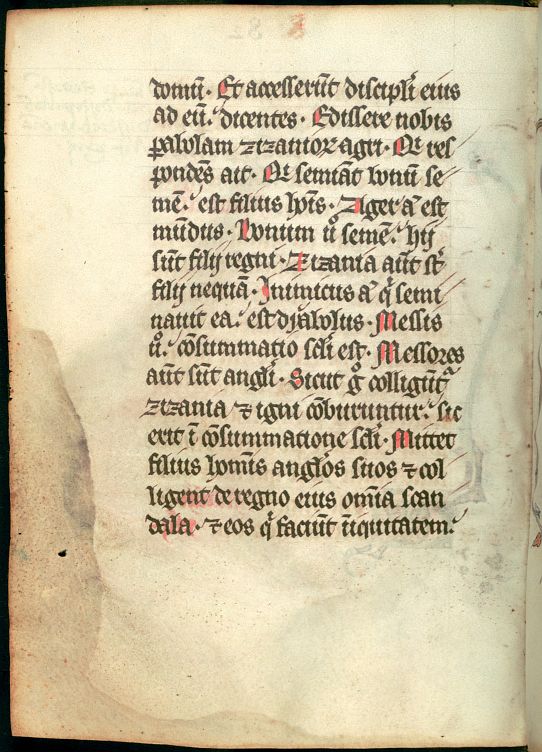 domū. Et accesserūt discipl̄i eius
ad eū. dicentes. Edissere nobis
ꝑabolam zizanioꝝ agri. Qͥ res
pondēs ait. Qͥ semīat bonū se
mē. est filius hoīs. Ager aͭ est
mūdus. Bonum ů semē. hij
sūt filij regni. Zizania aūt st̄
filij nequā. Inimicus aͭ qͥ semi
nauit ea. est dyabolus. Messis
ů. cōsummatio sc̄li est. Messores
aūt sūt angl̄i. Sicut gͦ colligūtͬ
zizania ⁊ igni cōburuntur. sic
erit ī cōsummatione sc̄li. Mittet
filius homīs angl̄os suos ⁊ col
ligent de regno eius om̄ia scan
dala. ⁊ eos qͥ faciūt īiquitatem.